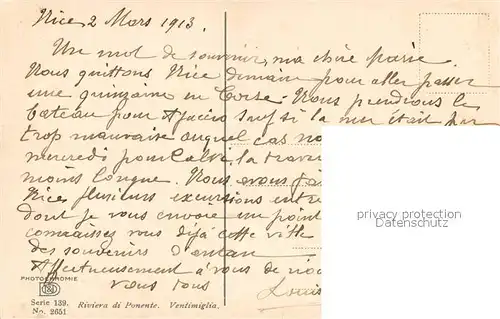 Nice 2 Mars 1913.
Un mot de souvenir, ma chère Marie.
Nous quittons Nice demain pour aller passer
une quinzaine en Corse. Nous prendrons le
bateau pour Ajaccio sauf si la mer était par
trop mauvaise auquel cas no
mercredi pour Calvi, la traver
moins longue. Nous avons fai
Nice plusieurs excursions entre
dont je vous envoie un point
connaissez vous déjà cette ville
des souvenirs d'antan
Affectueusement à vous de no
vous tous
Louis
privacy protection
www.oldthing.de
PHOTOCHROMIE
Serie 139. Riviera di Ponente. Ventimiglia.
No. 2651